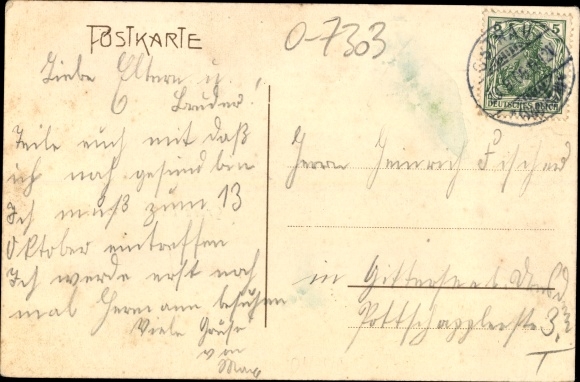 POSTKARTE
0-7303
5 5
DEUTSCHES REICH
Liebe Eltern u.
Bruder!
Teile euch mit daß
ich noch gesund bin
Ich muß zum 13
Oktober eintreffen
Ich werde erst noch
mal Hermann besuchen
Viele Grüße
von
Max
Herrn Heinrich Fischer
in Gittersee b.
Pottschapplerstr 3.
I